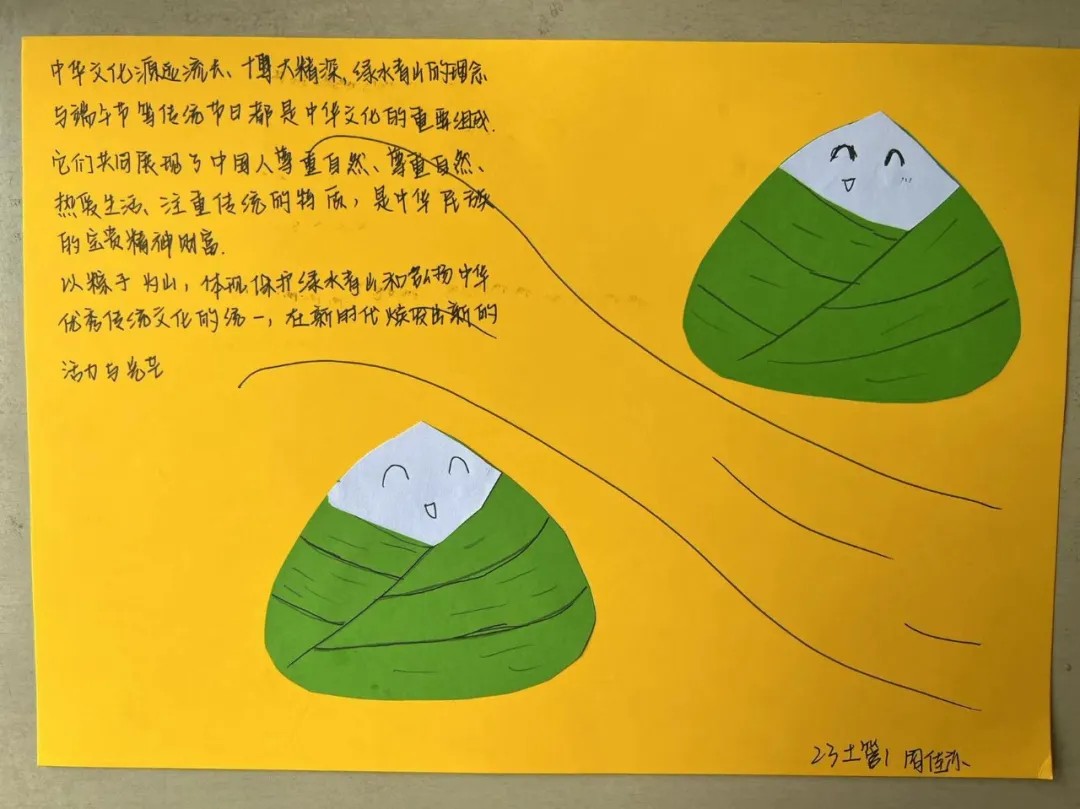 中华文化源远流长、博大精深,绿水青山的理念
与端午节等传统节日都是中华文化的重要组成.
它们共同展现了中国人尊重自然、尊重自然、
热爱生活、注重传统的特质,是中华民族
的宝贵精神财富.
以粽子为山,体现保护绿水青山和弘扬中华
优秀传统文化的统一,在新时代焕发出新的
活力与光芒
23土管1 周佳